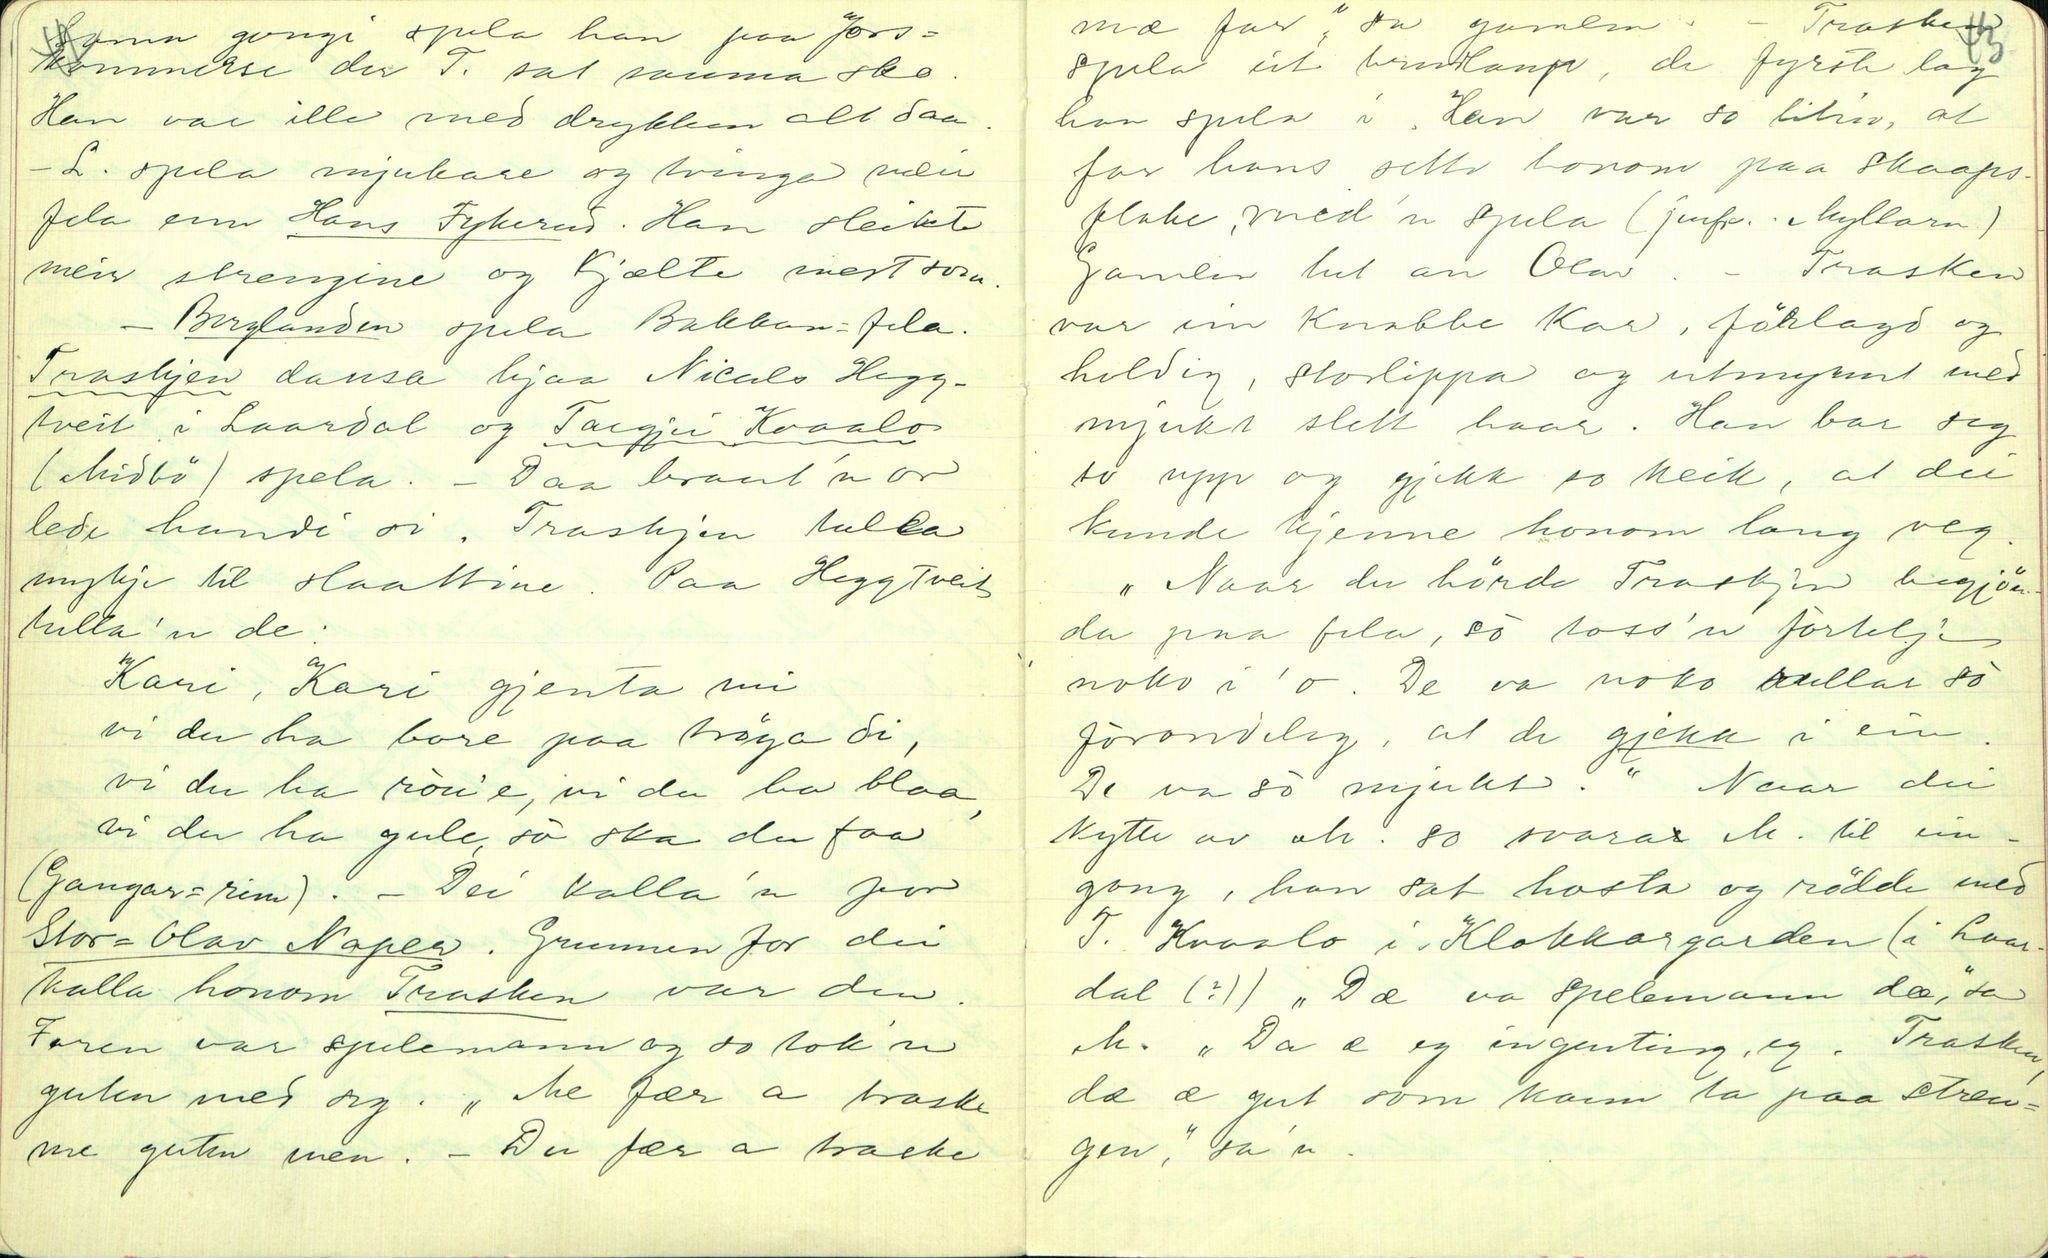 Sama gongi spela han paa Jors=
kommerse der T. sat sauma sko.
Han var ille med drykken alt daa.
– L. spela mjukare og tvinga meir
fela enn Hans Fykerud. Han sleikte
meir strengine og kjælte mest som.
– Berglanden spela Bakkan=fela.
Traskjen dansa hjaa Nicols Hegg-
tveit i Laardal og Targjei Kvaalo
(Midbö) spela. – Daa braut'n or
lede handi si. Traskjen tulla
mykje til slaattine. Paa Heggtveit
tulla'n de:
Kari, Kari gjenta mi
vi du ha bore paa tröya di,
vi du ha röu'e, vi du ha blaa,
vi du ha gule, sò ska du faa
(Gangar=rim). – Dei kalla'n for
Stor=Olav Napper. Grunnen for dei
kalla honom Trasken var den.
Faren var spelemann og so tok'n
guten med seg. „Me fær a traske
me guten men. – Du fær a traske
mæ far," sa gamlen. – Trasken 43
spela ut brudlaup, de fyrste lag
han spela i. Han var so liten, at
far hans sette honom paa skaaps-
flake, med'n spela (jmfr. Myllarn)
Gamlen het an Olav. – Trasken
var ein knabbe kar, förlagd og
holdig, storlippa og utmynnt med
mjukt slett haar. Han bar seg
so upp og gjekk so keik, at dei
kunde kjenne honom lang veg.
„Naar du hörde Traskjen begjön-
da paa fela, sò toss'n förtelje
noko i 'o. De va noko rullar sò
förandeleg, at de gjekk i ein.
De va sò mjukt." Naar dei
kytte av M. so svarar M. til ein-
gong, han sat hosta og rödde med
T. Kvaalo i Klokkargarden (i Laar-
dal (?)) „Dæ va spelemann dæ," sa
M. „Da æ eg ingenting, eg. Trasken,
dæ æ gut som kann ta paa stren=
gen," sa'n.